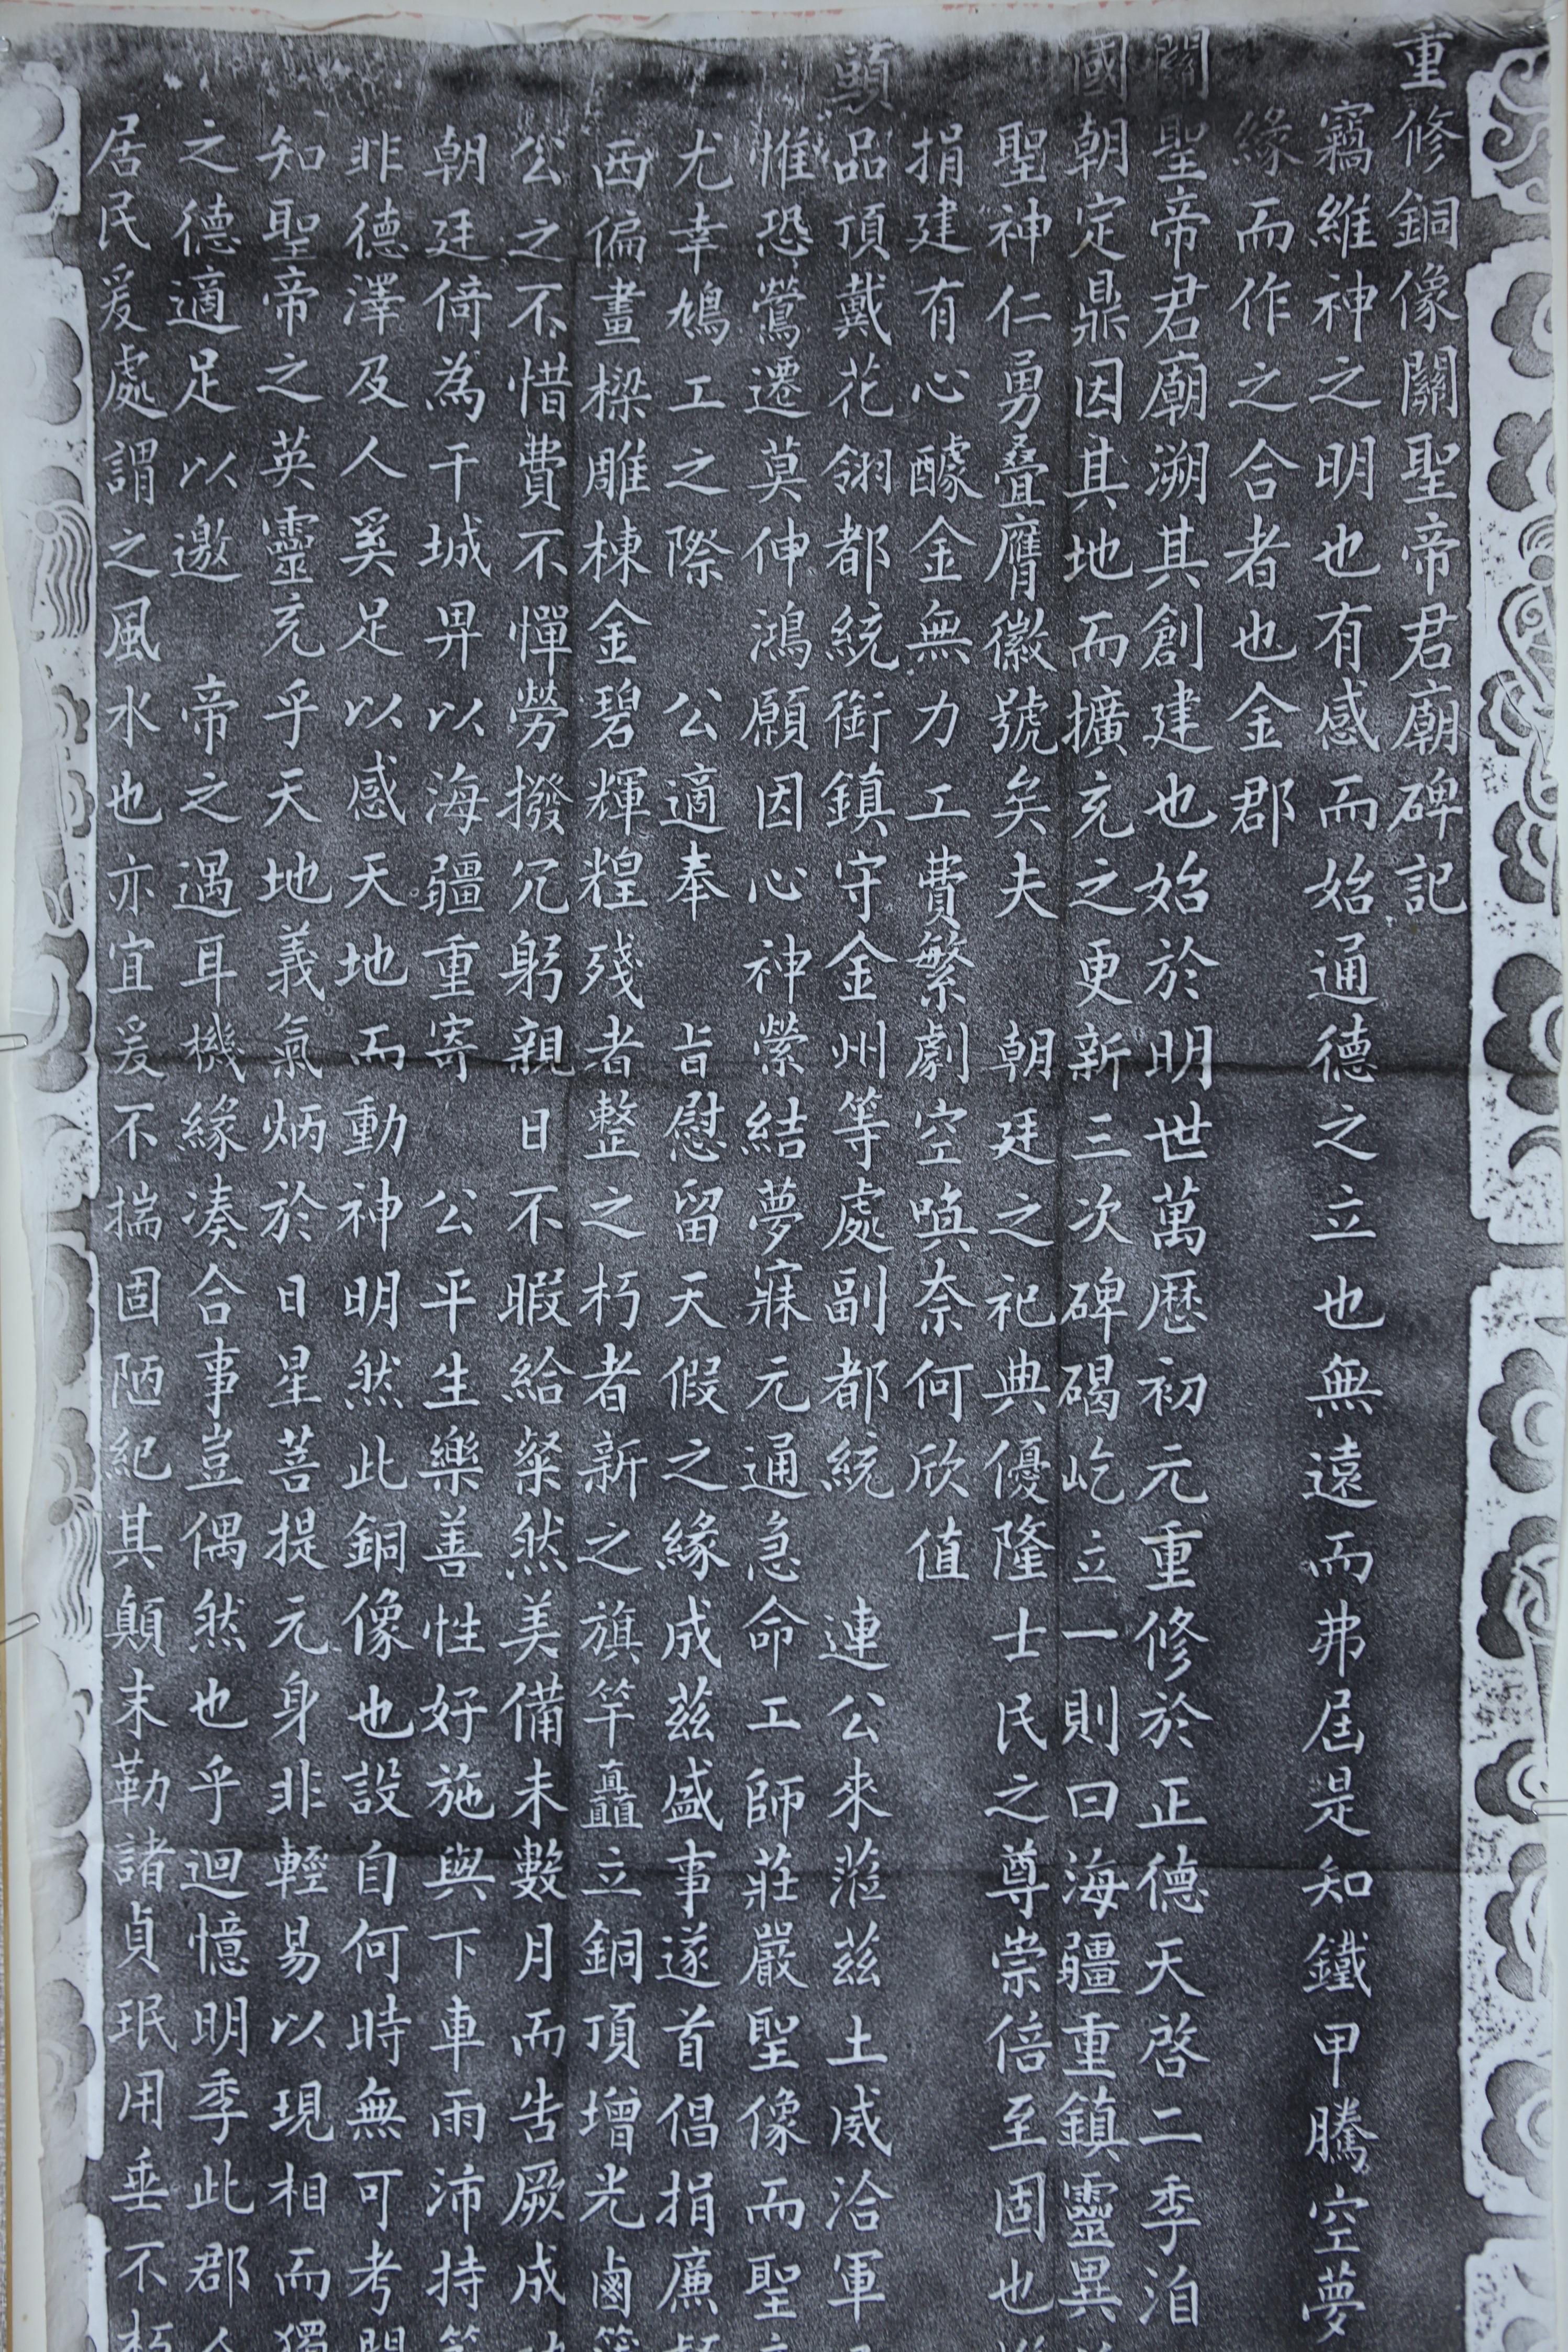 重修銅像關聖帝君廟碑記
竊維神之明也有感而始通德之立也無遠而弗屆是知鐵甲騰空夢
緣而作之合者也金郡
關聖帝君廟溯其創建也始於明世萬歷初元重修於正德天啓二季洎
國朝定鼎因其地而擴充之更新三次碑碣屹立一則曰海疆重鎮靈異
聖神仁勇疊膺徽號矣夫朝廷之祀典優隆士民之尊崇倍至固也
捐建有心醵金無力工費繁劇空喚奈何欣值
頭品頂戴花翎都統銜鎮守金州等處副都統連公來蒞茲土威洽軍
惟恐鶯遷莫伸鴻願因心神縈結夢寐元通急命工師莊嚴聖像而聖
尤幸鳩工之際公適奉旨慰留天假之緣成茲盛事遂首倡捐廉
西偏畫樑雕棟金碧輝煌殘者整之朽者新之旗竿矗立銅頂增光鹵
公之不惜費不憚勞撥冗躬親日不暇給粲然美備未數月而告厥成
朝廷倚為干城畀以海疆重寄公平生樂善性好施與下車雨沛持
非德澤及人奚足以感天地而動神明然此銅像也設自何時無可考
知聖帝之英靈充乎天地義氣炳於日星菩提元身非輕易以現相而獨
之德適足以邀帝之遇耳機緣湊合事豈偶然也乎迴憶明季此郡
居民爰處謂之風水也亦宜爰不揣固陋紀其顛末勒諸貞珉用垂不朽